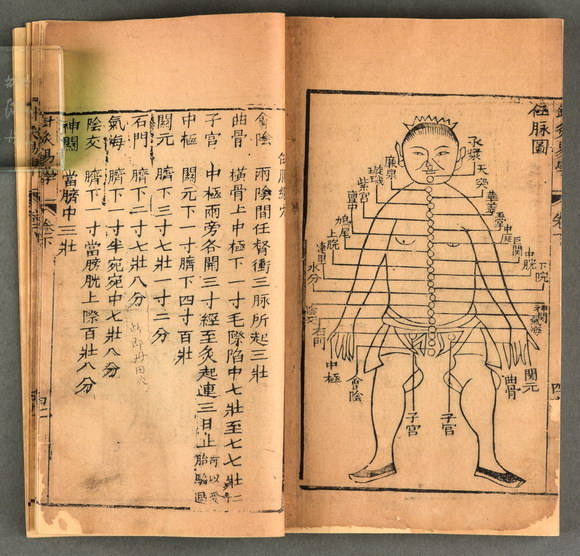 任脈圖
承漿
廉泉
天突
璇璣
華蓋
紫宮
玉堂
膻中
中庭
鳩尾
巨闕
上脘
中脘
建里
下脘
水分
神闕
陰交
氣海
石門
關元
中極
曲骨
會陰
子宮
子宮
任脈經穴
會陰 兩陰間任督衝三脈所起三壯
曲骨 橫骨上中極下一寸毛際陷中七壯至七七壯二寸
子宮 中極兩旁各開三寸經至灸起連三日止可以受胎驗過
中極 關元下一寸臍下四寸百壯
關元 臍下三寸七壯一寸二分
石門 臍下二寸七壯八分
此即丹田穴
氣海 臍下一寸半宛宛中七壯八分
陰交 臍下一寸當膀胱上際百壯八分
神闕 當臍中三壯
針灸易學 卷下 四二